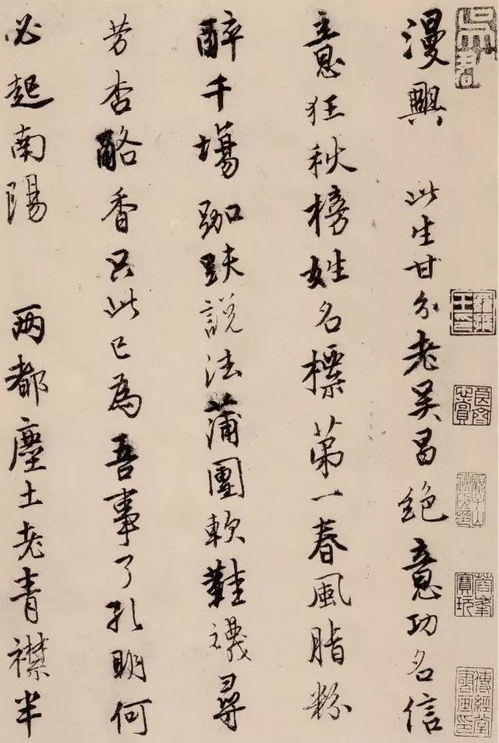 漫興 此生甘分老吳昌絕意功名信
意狂秋榜姓名標第一春風脂粉
醉千場跏趺說法蒲團軟鞋襪尋
芳杏酪香只此已為吾事了孔明何
必起南陽 兩都塵土老青襟半